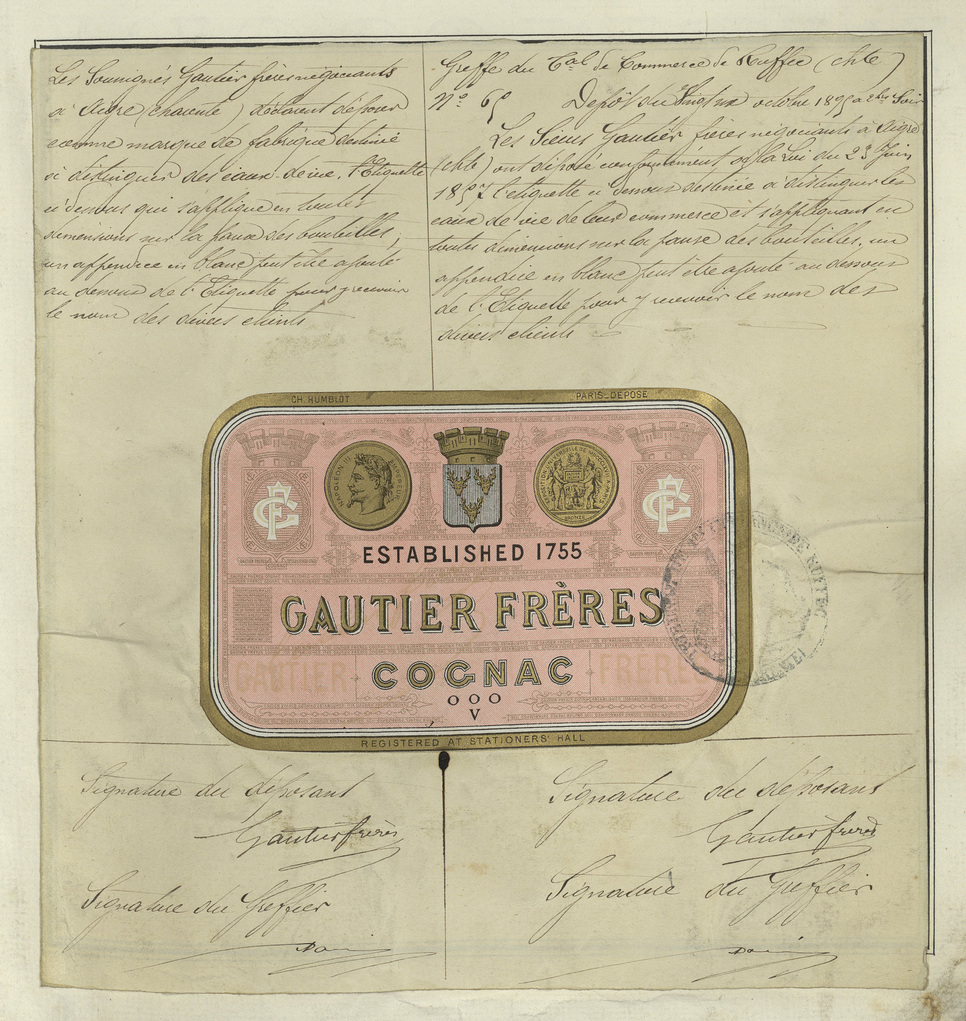 Les Soussignés Gautier frères négociants
à Aigre (charente) déclarent déposer
comme marque de fabrique destiné
à distinguer des eaux-de-vie. l'Etiquette
ci dessous qui s'applique en toutes
dimensions sur la panse des bouteilles,
un appendice en blanc peut être ajouté
au dessous de l'Etiquette pour y recevoir
le nom des divers clients
Greffe du Tal de Commerce de Ruffec (chte)
N° 65
Depôt du octobre 1895 a Soir
Les Sieurs Gautier frères négociants à Aigre
(chte) ont déposé conformément à la loi du 23 Juin
1857 l'etiquette ci dessous destinée à distinguer les
eaux de vie de leur commerce et s'appliquant en
toutes dimensions sur la panse des bouteilles, un
appendice en blanc peut être ajouté au dessous
de l'Etiquette pour y recevoir le nom des
divers clients
CH. HUMBLOT
PARIS_DEPOSE
NAPOLEON III EMPEREUR
BRONZE
GF
GF
ESTABLISHED 1755
GAUTIER FRÈRES
GAUTIER COGNAC FRERES
OOO
V
REGISTERED AT STATIONERS' HALL
Signature du déposant
Gautier frères
Signature du Greffier
Signature du déposant
Gautier frères
Signature du Greffier